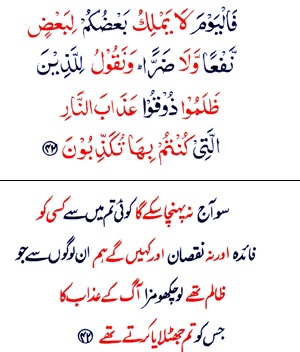 فَالْيَوْمَ لَا يَمْلِكُ بَعْضُكُمْ لِبَعْضٍ
نَّفْعًا وَّلَا ضَرًّا ؕ وَنَقُوْلُ لِلَّذِيْنَ
ظَلَمُوْا ذُوْقُوْا عَذَابَ النَّارِ
الَّتِىْ كُنْتُمْ بِهَا تُكَذِّبُوْنَ ﴿۴۲﴾
سو آج نہ پہنچا سکے گا کوئی تم میں سے کسی کو
فائدہ اور نہ نقصان اور کہیں گے ہم ان لوگوں سے جو
ظالم تھے لو چکھو مزا آگ کے عذاب کا
جس کو تم جھٹلایا کرتے تھے ﴿۴۲﴾